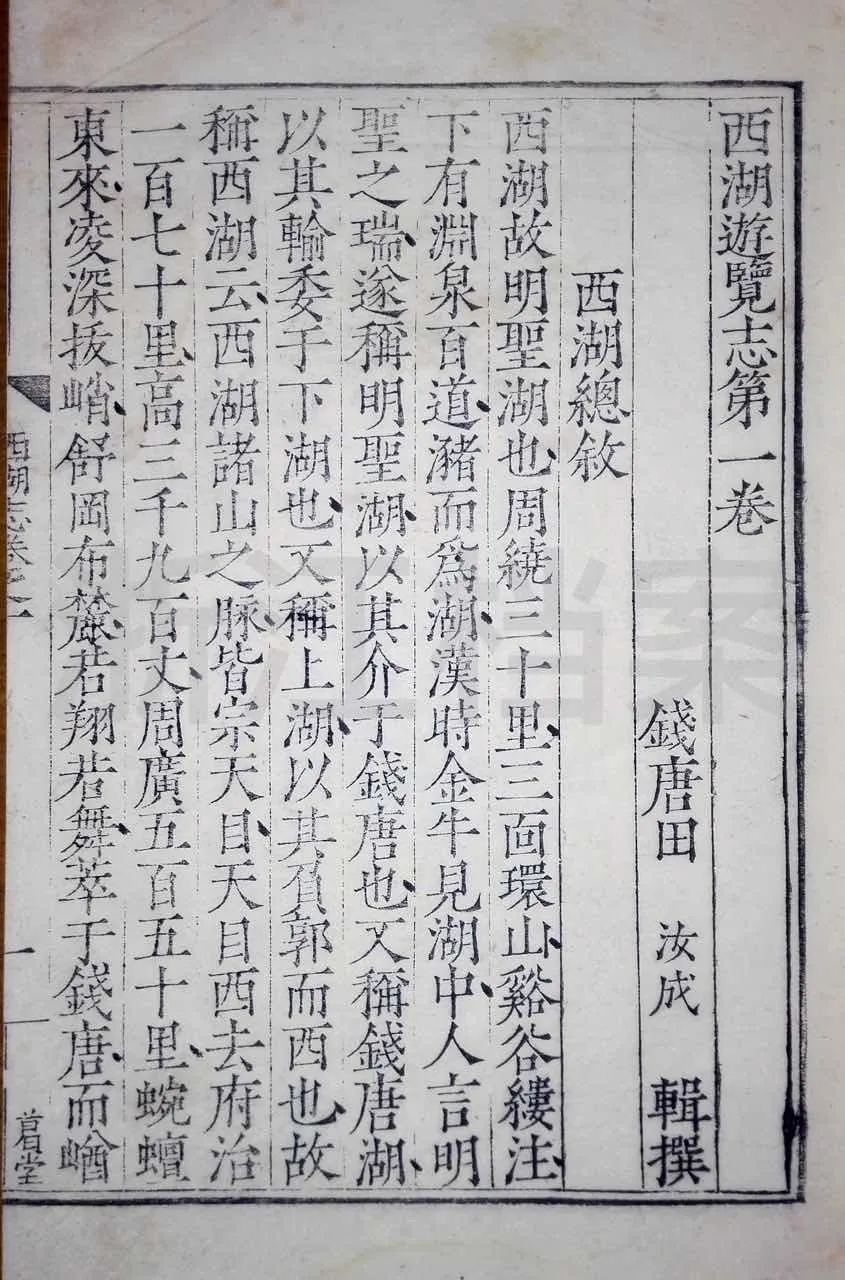 西湖遊覽志第一卷
錢唐田 汝成 輯撰
西湖總敘
西湖故明聖湖也、周繞三十里、三面環山、谿谷縷注、
下有淵泉百道、瀦而爲湖、漢時金牛見湖中、人言明
聖之瑞、遂稱明聖湖、以其介于錢唐也、又稱錢唐湖、
以其輸委于下湖也、又稱上湖、以其負郭而西也、故
稱西湖云、西湖諸山之脉、皆宗天目、天目西去府治
一百七十里、高三千九百丈、周廣五百五十里、蜿蟺
東來、凌深拔峭、舒岡布麓、若翔若舞、萃于錢唐、而崷
西湖志卷之一
一
蒼堂
档案